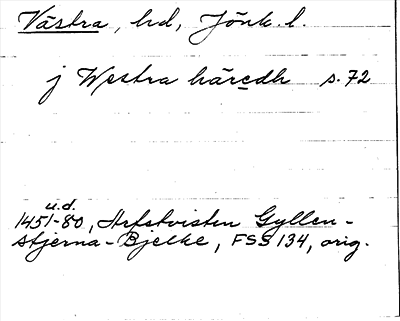 Västra, hd, Jönk. l.
j Westra häredh s. 72
u.d.
1451-80, Arfstvisten Gyllen-
stjerna-Bjelke, FSS 134, orig.